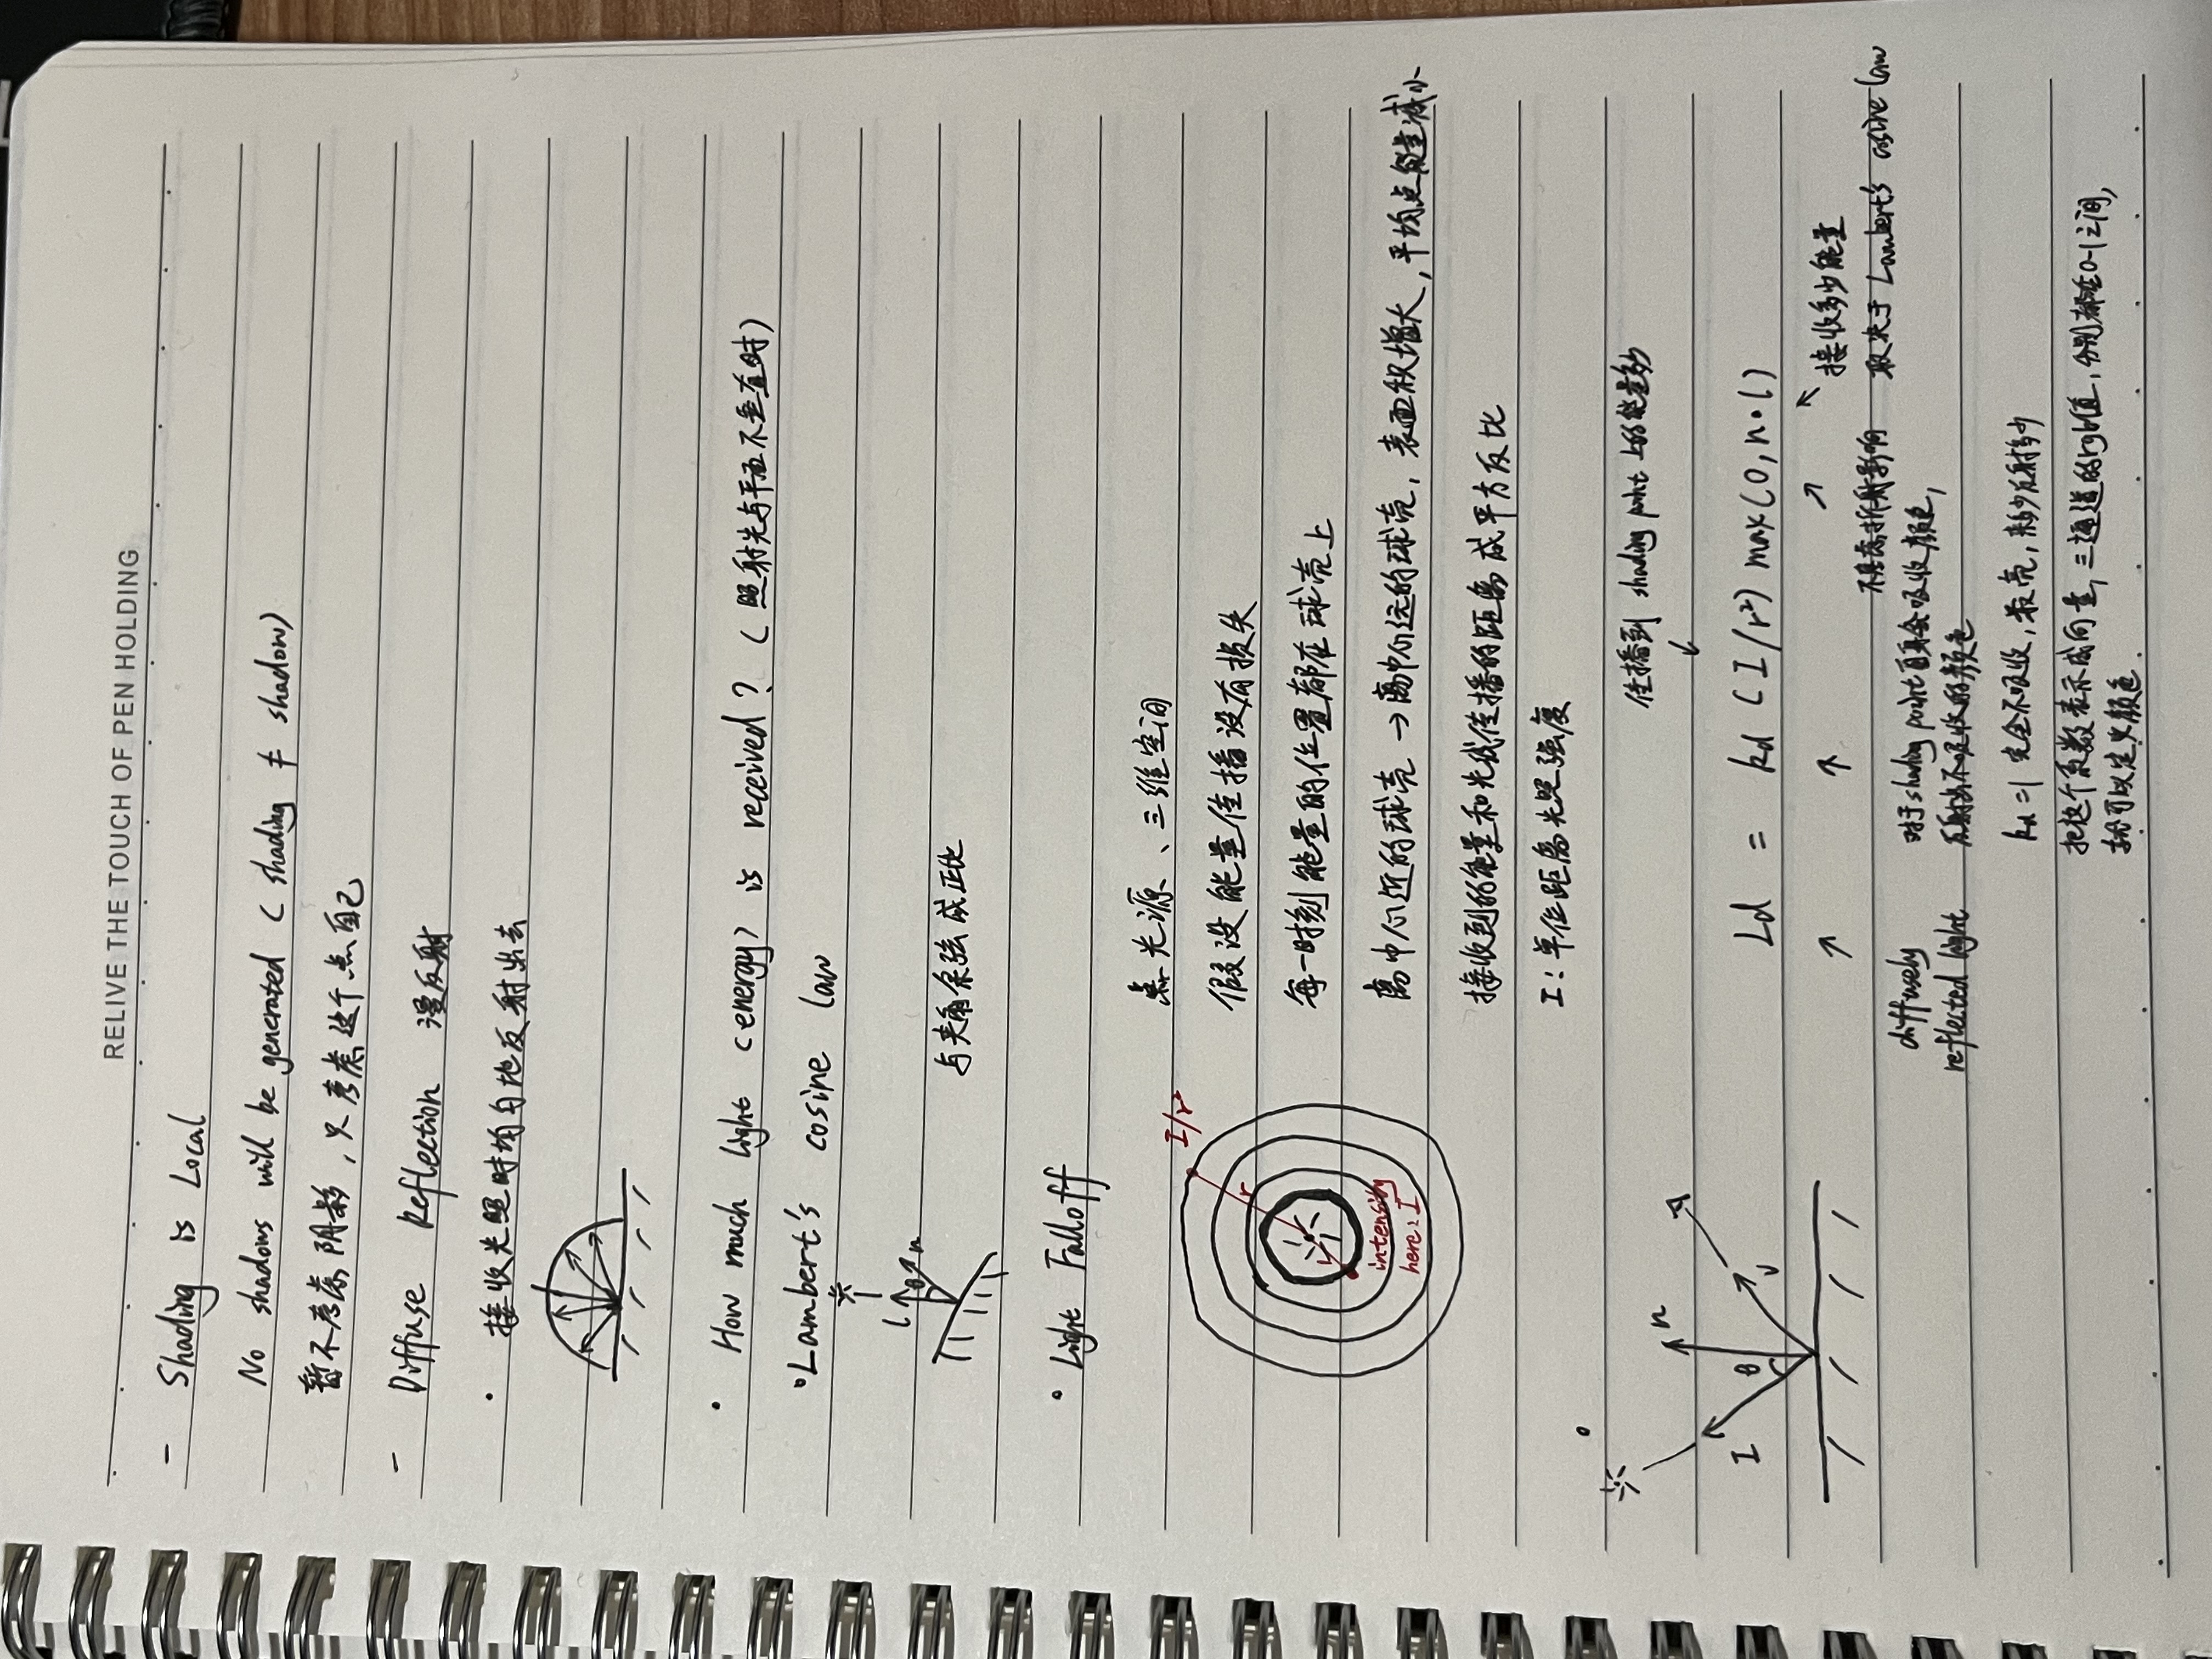 RELIVE THE TOUCH OF PEN HOLDING
- Shading is Local
No shadows will be generated (shading ≠ shadow)
暂不考虑阴影,只考虑这个点自己
- Diffuse Reflection 漫反射
· 接收光照时均匀地反射出去
· How much light (energy) is received? (照射光与平面不垂直时)
◦Lambert's cosine law
l θ n
与夹角余弦成正比
◦ Light Falloff
I/r²
点光源、三维空间
假设能量传播没有损失
每一时刻能量的位置都在球壳上
r
离中心近的球壳→离中心远的球壳,表面积增大,平均点能量减小
intensity
here: I
接收到的能量和光线传播的距离成平方反比
I:单位距离光照强度
传播到shading point上的能量多少
I θ n v
Ld = kd (I/r²) max(0, n·l)
接收多少能量
取决于Lambert's cosine law
不考虑折射影响
diffusely
reflected light
对于shading point自身会吸收颜色,
反射出不吸收的颜色
kd=1 完全不吸收,最亮,来多少反射多少
把这个系数表示成向量,三通道的rgb值,分别都在0-1之间,
就可以定义颜色.